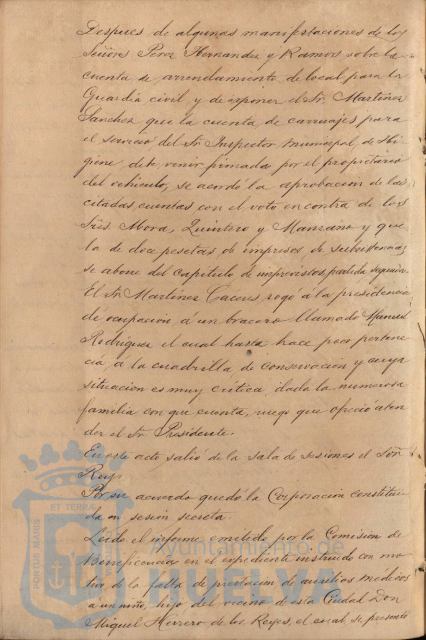 Despues de algunas manifestaciones de los
Señores Perez Hernandez y Ramos sobre la
cuenta de arrendamiento de local para la
Guardia civil y de exponer el Sr. Martinez
Sanchez que la cuenta de carruajes para
el servicio del Sr. Inspector municipal de Hi
giene debe venir firmada por el propietario
del vehiculo, se acordó la aprobacion de las
citadas cuentas con el voto en contra de los
Sres Mora, Quintero y Manzano y que
la de doce pesetas de impresos de subsistencias
se abone del capitulo de imprevistos partida segunda
El Sr. Martinez Caceres rogó á la presidencia
dé ocupacion á un bracero llamado Manuel
Rodriguez el cual hasta hace poco pertene
cia á la cuadrilla de conservacion y cuya
situacion es muy critica dada la numerosa
familia con que cuenta, ruego que ofreció aten
der el Sr. Presidente.
En este acto salió de la sala de sesiones el Señor
Rey.
Por su acuerdo quedó la Corporacion constitui
da en sesion secreta.
Leido el informe emitido por la Comision de
Beneficencia en el expediente instruido con mo
tivo de la falta de prestacion de auxilios médicos
a un niño, hijo del vecino de esta Ciudad Don
Miguel Herrero de los Reyes, el cual se presentó
PORTUS MARIS ET TERRAE
Ayuntamiento de
HUELVA